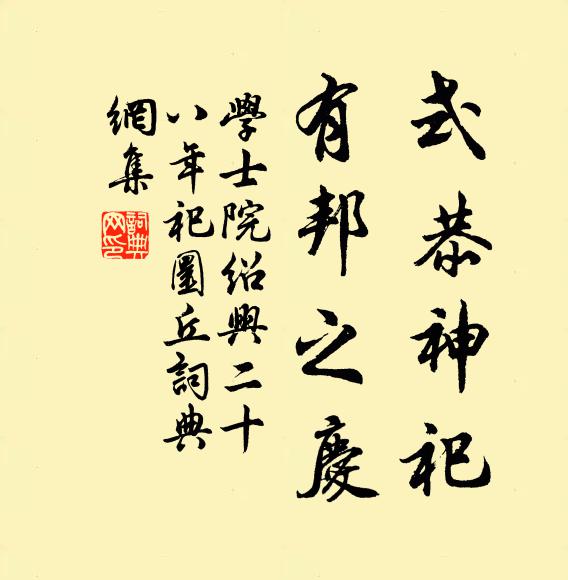 式恭神祀
有邦之慶
學士院紹興二十
八年祀圜丘詞典
網集
詞典网印